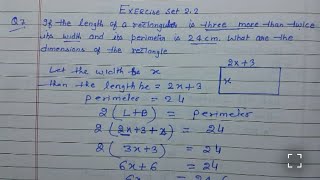 EXERCISE Set 2.2
Q7 If the length of a rectangles is three more than twice
its width and its perimeter is 24 cm. What are the
dimensions of the rectangle
Let the width be x
then the length be = 2x+3
2x+3
x
perimeter = 24
2 (L+B) = perimeter
2 (2x+3+x) = 24
2 (3x+3) = 24
6x+6 = 24